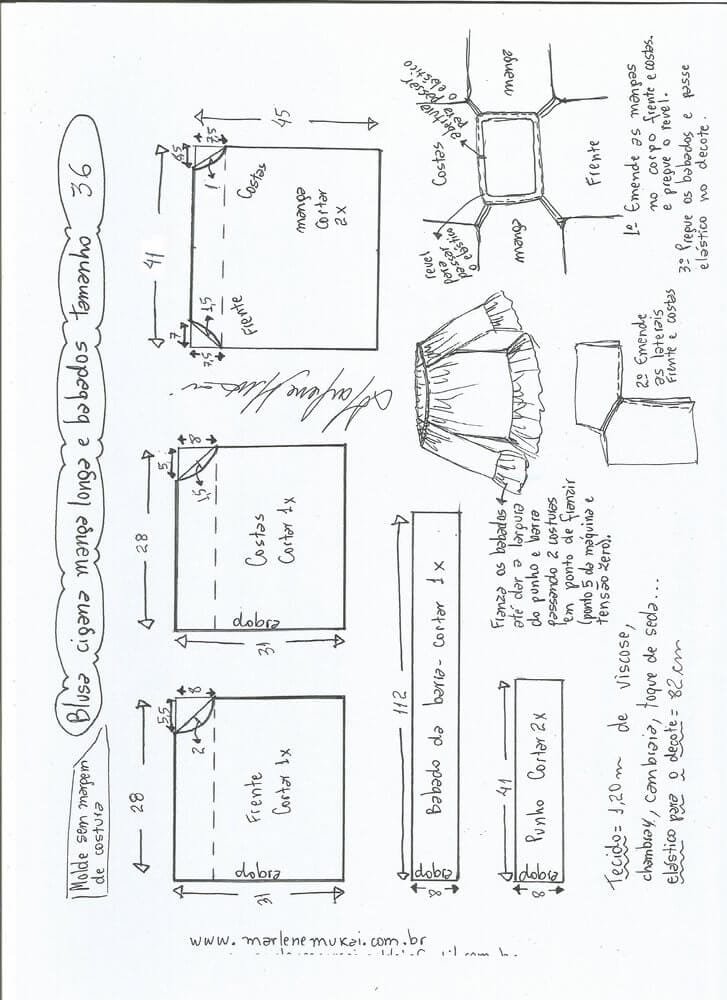 Blusa cigana manga longa e babados tamanho 36
Molde sem margem
de costura
28
5,5
8
2
Frente
Cortar 1x
dobra
31
28
5
8
1,5
Costas
Cortar 1x
dobra
31
41
7
7,5
1,5
Frente
5,5
7,5
1
Costas
45
manga
Cortar
2x
112
Babado da barra - Cortar 1x
dobra
8
41
Punho Cortar 2x
dobra
8
Franza os babados
até dar a largura
do punho e barra
passando 2 costuras
em ponto de franzir
(ponto 5 da máquina e
tensão zero).
Tecido = 1,20m de viscose,
chambray, cambraia, toque de seda...
Elástico para o decote = 82 cm
manga
abertura
para
passar
o elástico
Costas
Frente
manga
revel
para
passar
o elástico
1º Emende as mangas
no corpo frente e costas.
e pregue o revel.
2º Emende
as laterais
Frente e costas
3º Pregue os babados e passe
elástico no decote.
www.marlenemukai.com.br